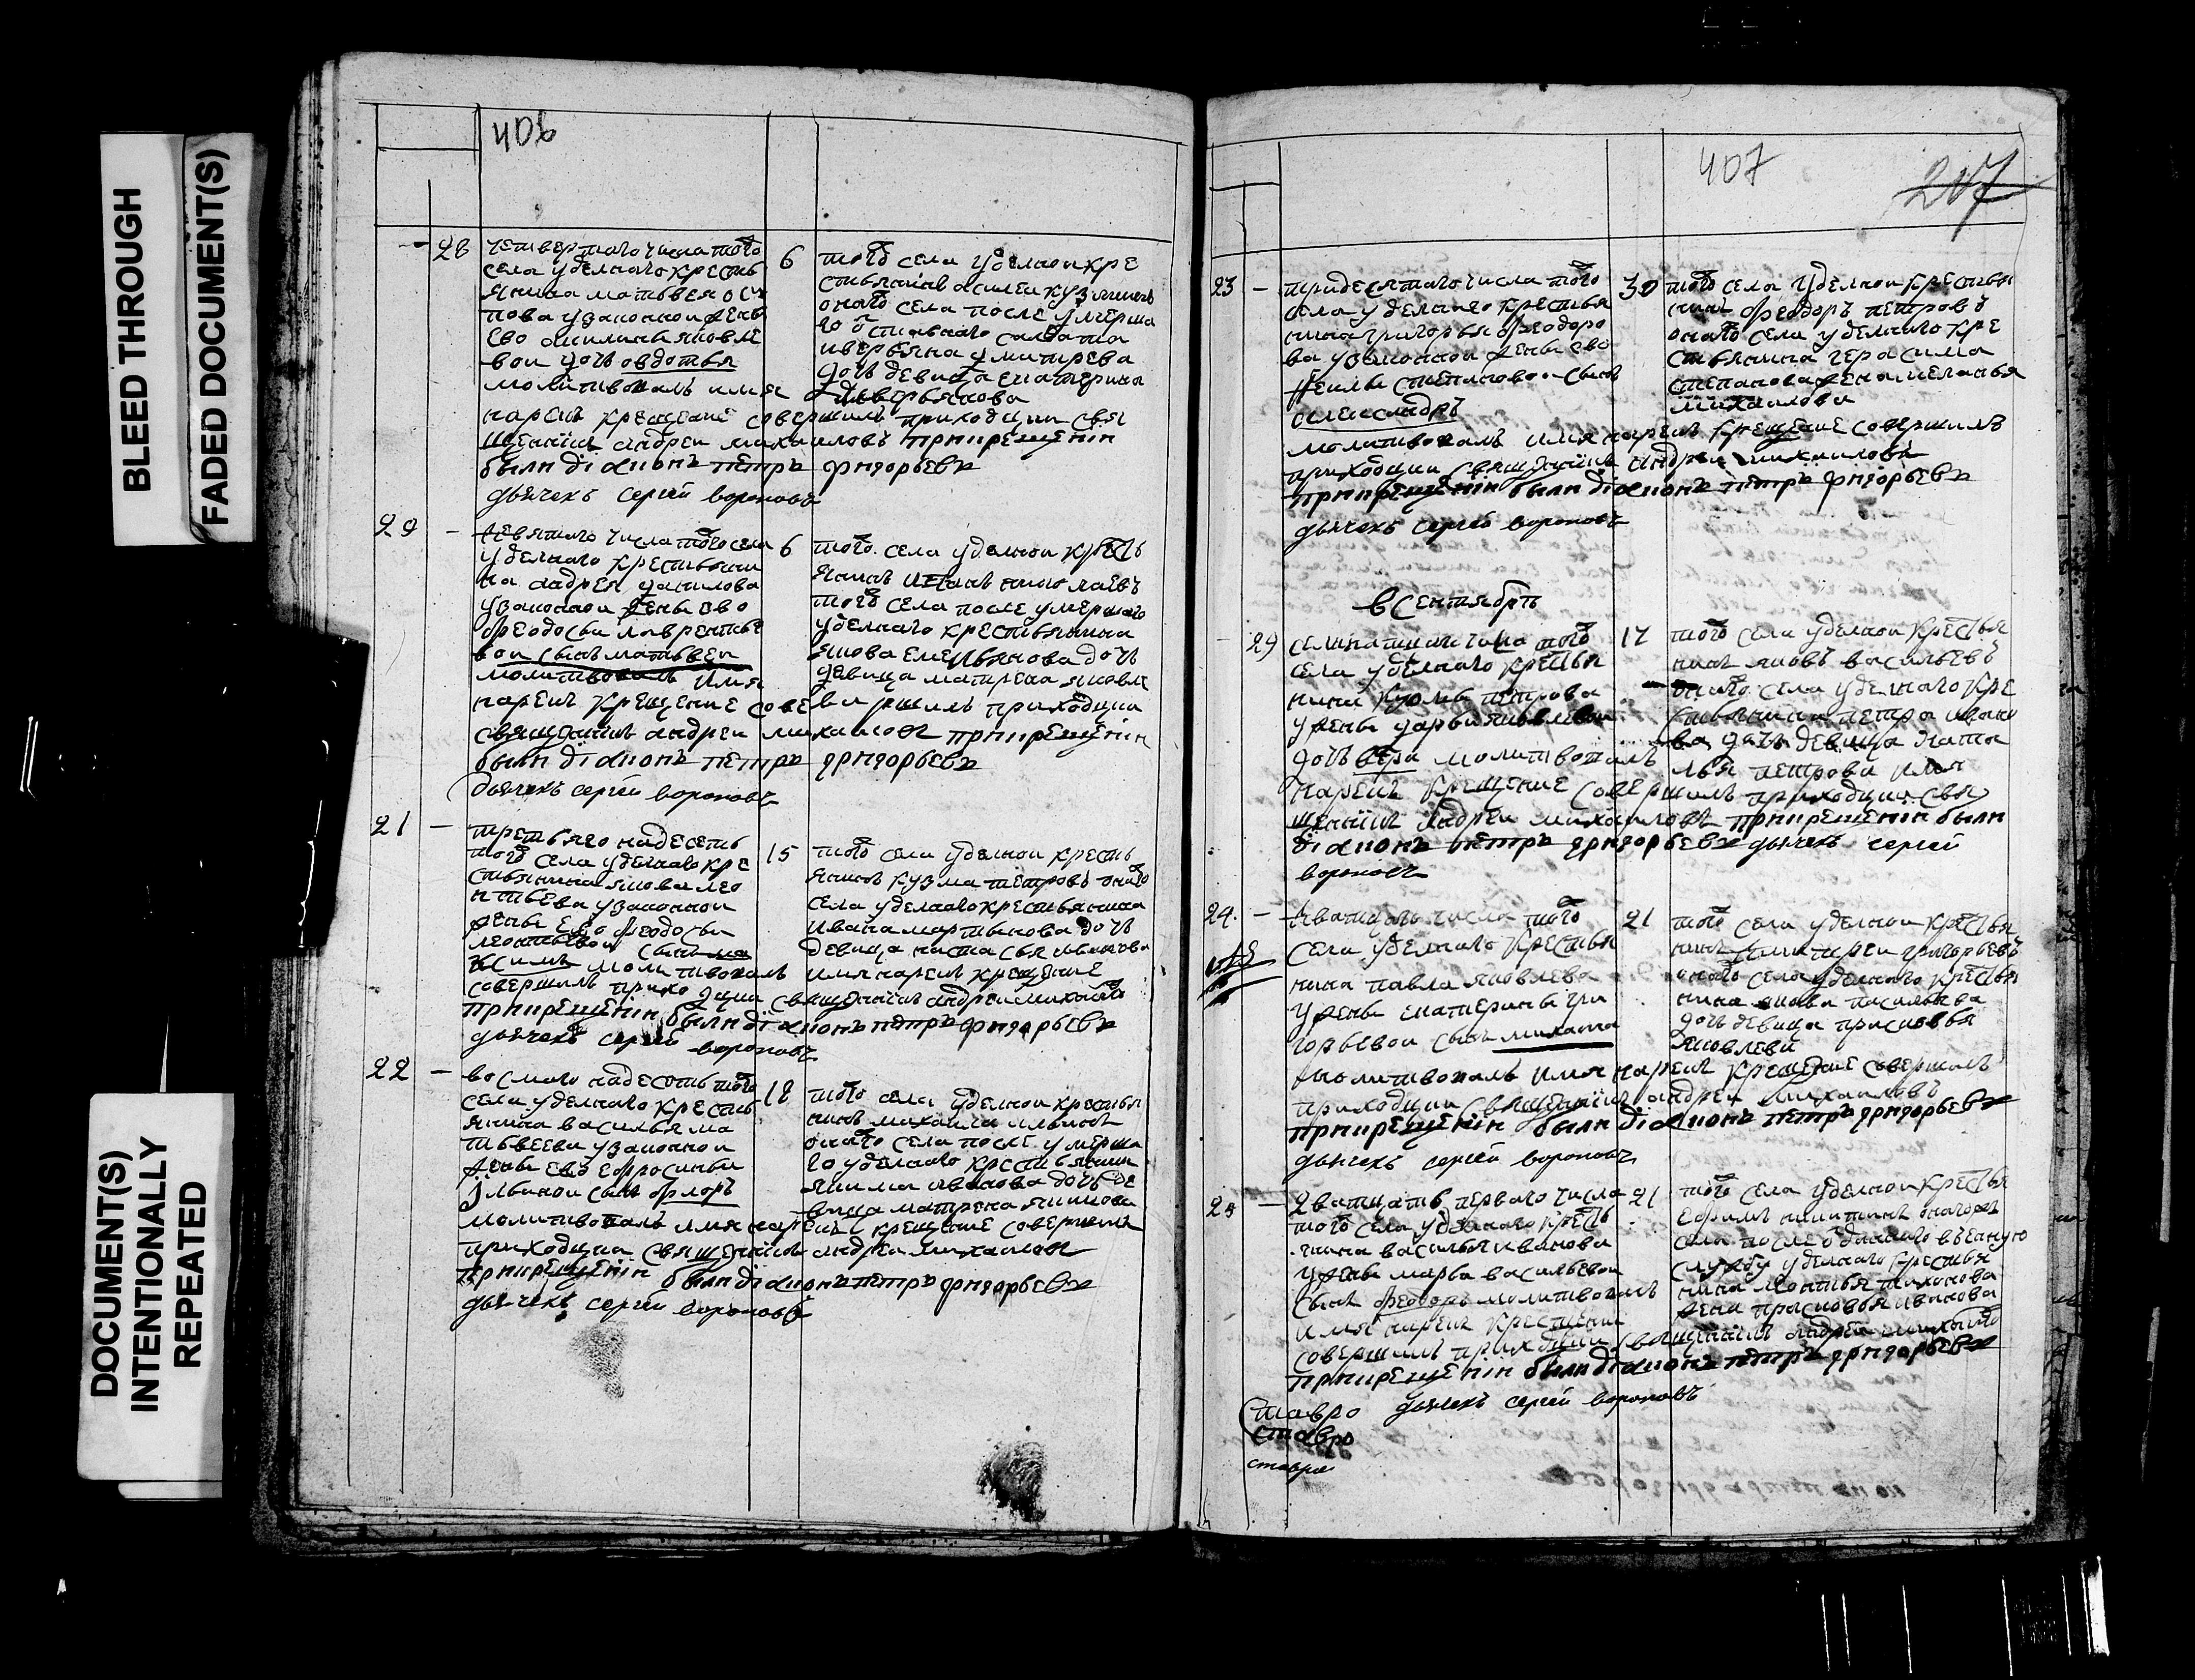 BLEED THROUGH
FADED DOCUMENT(S)
DOCUMENT(S)
INTENTIONALLY
REPEATED
406
28
четвертаго числа того
села уделнаго кресть
янина матвея оси
пова узаконной жены
ево акилины яковле
вои дочь овдотья
молитвовалъ имя
нареч крещение совершилъ приходции свя
щенникъ андреи михаиловъ прикрещении
были діаконъ петръ григорьевъ
дьячекъ сергей вороновъ
6
того села уделнои кре
стьянинъ василеи кузминъ
оного села после умерша
го отставного салдата
аверьяна дмитрева
дочь девица екатерина
аверьянова
29
девятаго числа того села
уделнаго крестьяни
на андрея данилова
узаконнои жены ево
феодосьи лаврентье
вои сынъ матьвеи
молитвовалъ имя
нареч крещение совершилъ приходции
священникъ андреи михаиловъ прикрещении
были діаконъ петръ григорьевъ
дьячекъ сергей вороновъ
6
того села уделнои кресть
янинъ иванъ николаевъ
того села после умершаго
уделнаго крестьянина
якова емельянова дочь
девица матрена яковле
ва
21
третьяго надесеть
того села уделнаго кре
стьянина якова лео
нтьева узаконнои
жены ево феодосьи
леонтьевои сынъ ма
ксимъ молитвовалъ имя нареч крещение
совершилъ приходции священникъ андреи михаило
прикрещении были діаконъ петръ григорьевъ
дьячекъ сергей вороновъ
15
того села уделнои кресть
янинъ кузма петровъ оного
села уделнаго крестьянина
ивана мартынова дочь
девица настасья иванова
22
восмаго надесеть того
села уделнаго кресть
янина василья ма
тьвеева узаконнои
жены ево ефросиньи
ильинои сынъ флоръ
молитвовалъ имя нареч крещение совершилъ
приходции священникъ андреи михаиловъ
прикрещении были діаконъ петръ григорьевъ
дьячекъ сергей вороновъ
18
того села уделнои крестья
нинъ михаила ильинъ
оного села после умерша
го уделнаго крестьянин
якима иванова дочь де
вица матрена якимова
407
207
23
тридесятаго числа того
села уделнаго крестья
нина григорья феодоро
ва узаконнои жены ево
степановои сынъ
александръ
молитвовалъ имя нареч крещение совершилъ
приходции священникъ андреи михаиловъ
прикрещении были діаконъ петръ григорьевъ
дьячекъ сергей вороновъ
30
того села уделнои крестья
нинъ феодоръ петровъ
оного села уделнаго кре
стьянина герасима
степанова жена меланья
михаилова
в Сентябрѣ
29
села уделнаго крестья
нина кузмы петрова
ужены дарьи яковлевои
дочь вера молитвовалъ имя
нареч крещение совершилъ приходции свя
щенникъ андреи михаиловъ прикрещении были
діаконъ петръ григорьевъ дьячекъ сергей
вороновъ
17
того села уделнои крестья
нинъ яковъ васильевъ
оного села уделнаго кре
стьянина петра ивано
ва дочь девица ната
лья петрова
24.
дватцать числа того
села уделнаго крестья
нина павла яковлева
ужены екатерины гри
горьевои сынъ михаила
молитвовалъ имя нареч крещение совершилъ
приходции священникъ андреи михаиловъ
прикрещении были діаконъ петръ григорьевъ
дьячекъ сергей вороновъ
21
того села уделнои крестья
нинъ дмитреи григорьевъ
оного села уделнаго крестья
нина якова васильева
дочь девица прасковья
яковлева
25
дватцать перваго числа
того села уделнаго кресть
янина василья иванова
ужены марьи васильевои
сынъ феодоръ молитвовалъ
имя нареч крещение
совершилъ приходции священникъ андреи михаило
прикрещении были діаконъ петръ григорьевъ
дьячекъ сергей вороновъ
21
того села уделнои крестья
ефимъ никитинъ оного
села после отданного въ военную
службу уделнаго крестья
нина леонтья тихонова
жена прасковья иванова
ставро
ставро
ставро